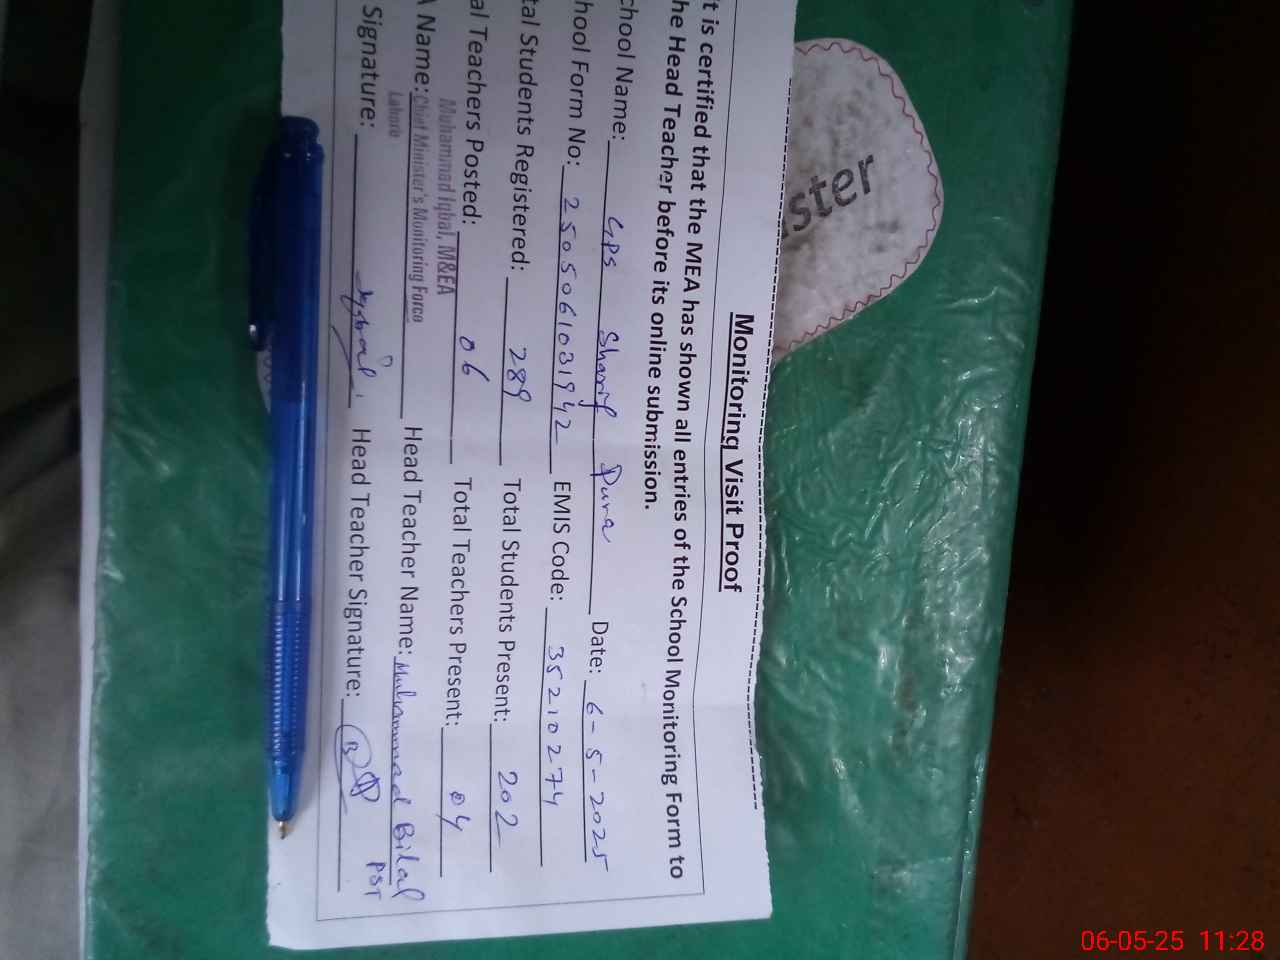 Monitoring Visit Proof
t is certified that the MEA has shown all entries of the School Monitoring Form to
he Head Teacher before its online submission.
chool Name: GPS Sharif Pura Date: 6-5-2025
hool Form No: 2505061031942 EMIS Code: 35210274
tal Students Registered: 289 Total Students Present: 202
al Teachers Posted: 06 Total Teachers Present: 04
Muhammad Iqbal, M&EA
A Name: Chief Minister's Monitoring Force Head Teacher Name: Muhammad Bilal
Lahore
PST
Signature: Head Teacher Signature:
ster
06-05-25 11:28